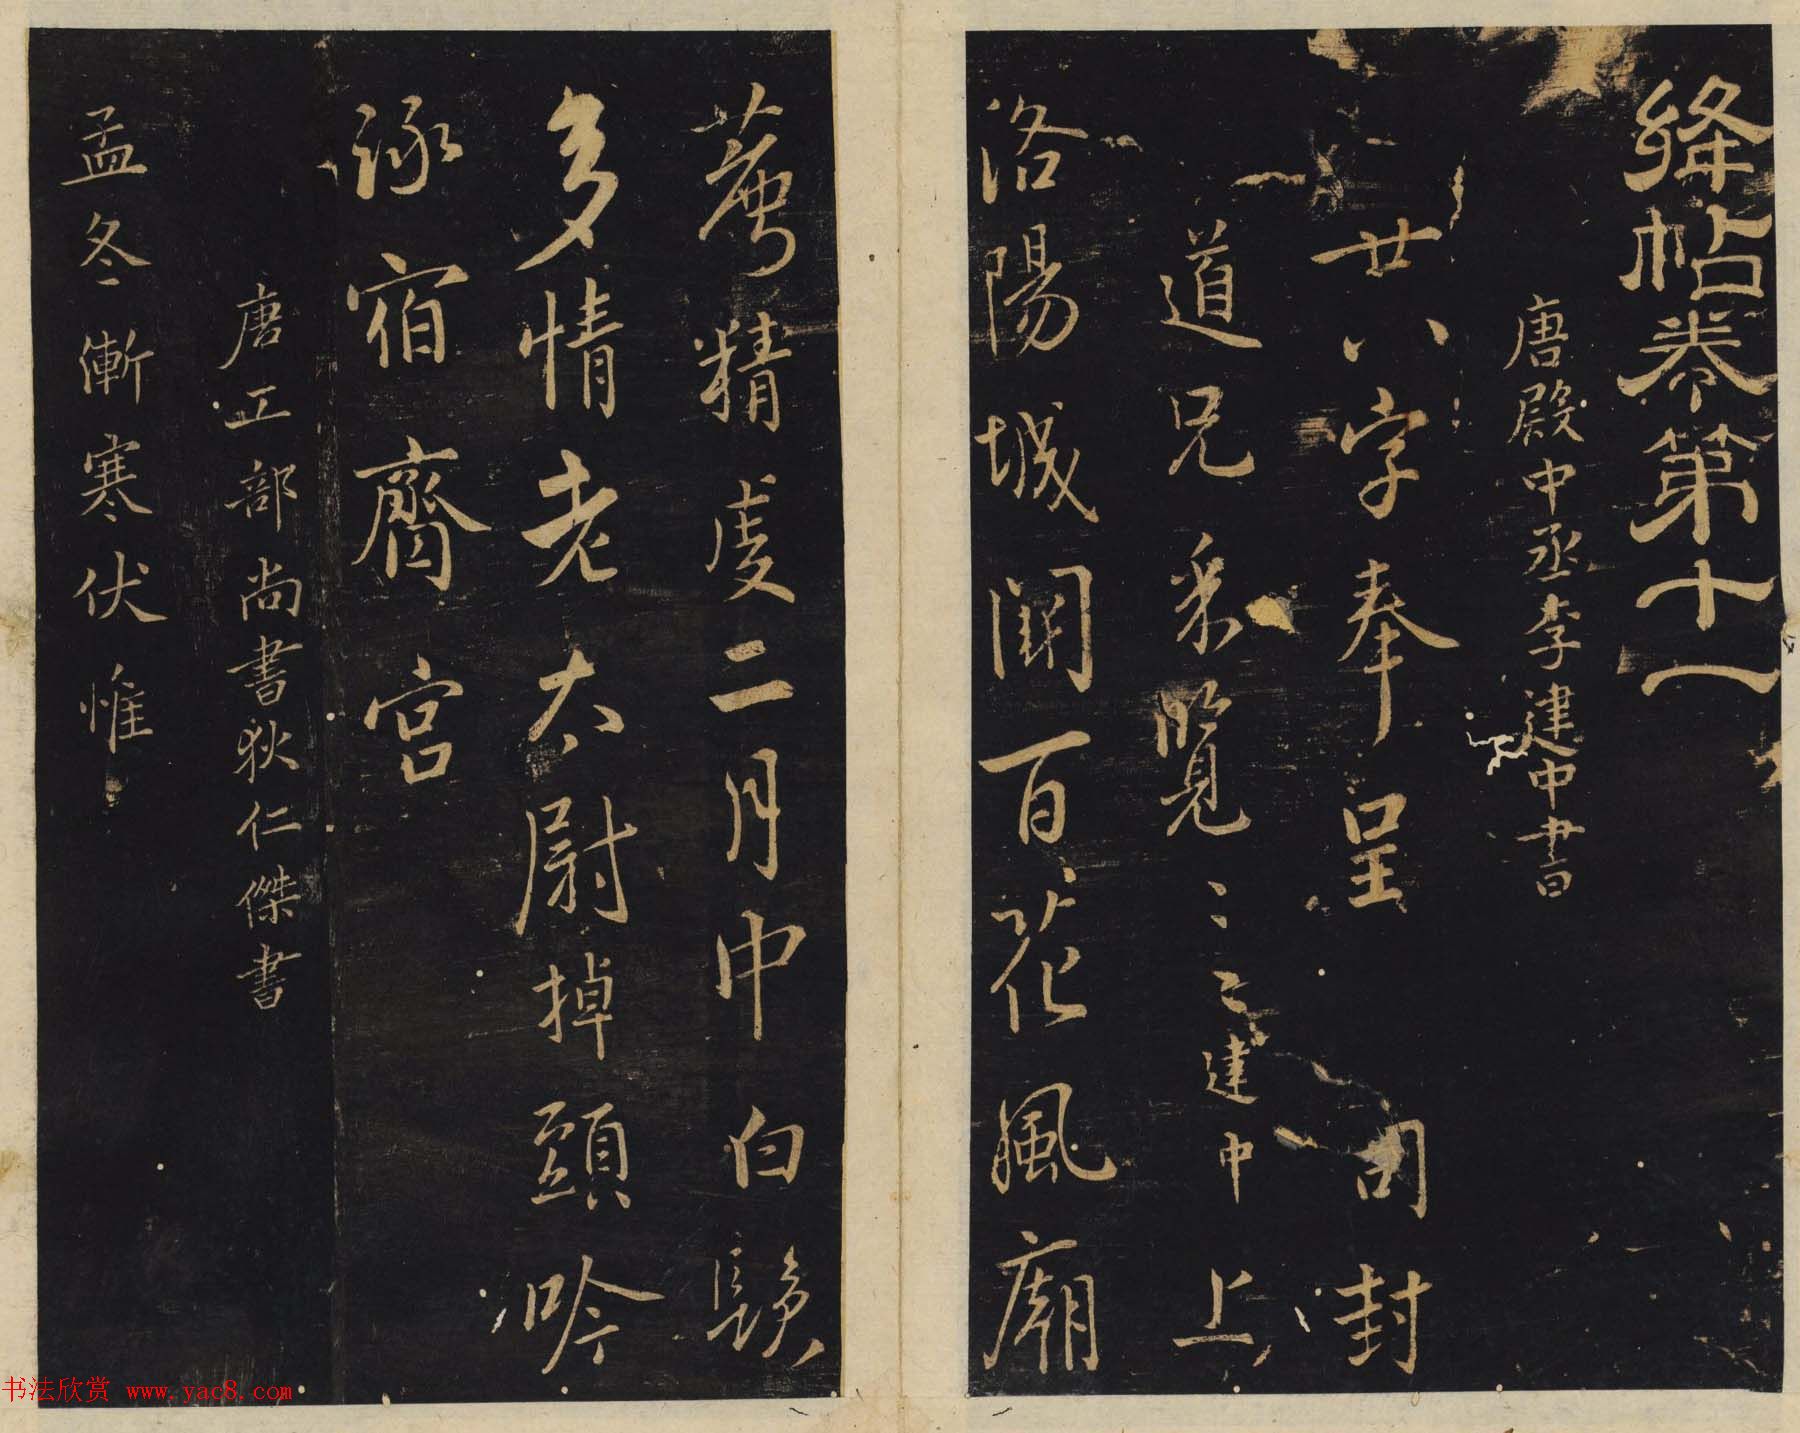 絳帖卷第十一
唐殿中丞李建中書
廿八字奉呈 司封
道兄采覽二二建中上
洛陽城闕百花風廟
精虔二月中白鬚
多情老太尉掉頭吟
詠宿齋宮
唐工部尚書狄仁傑書
孟冬漸寒伏惟
书法欣赏 www.yac8.com